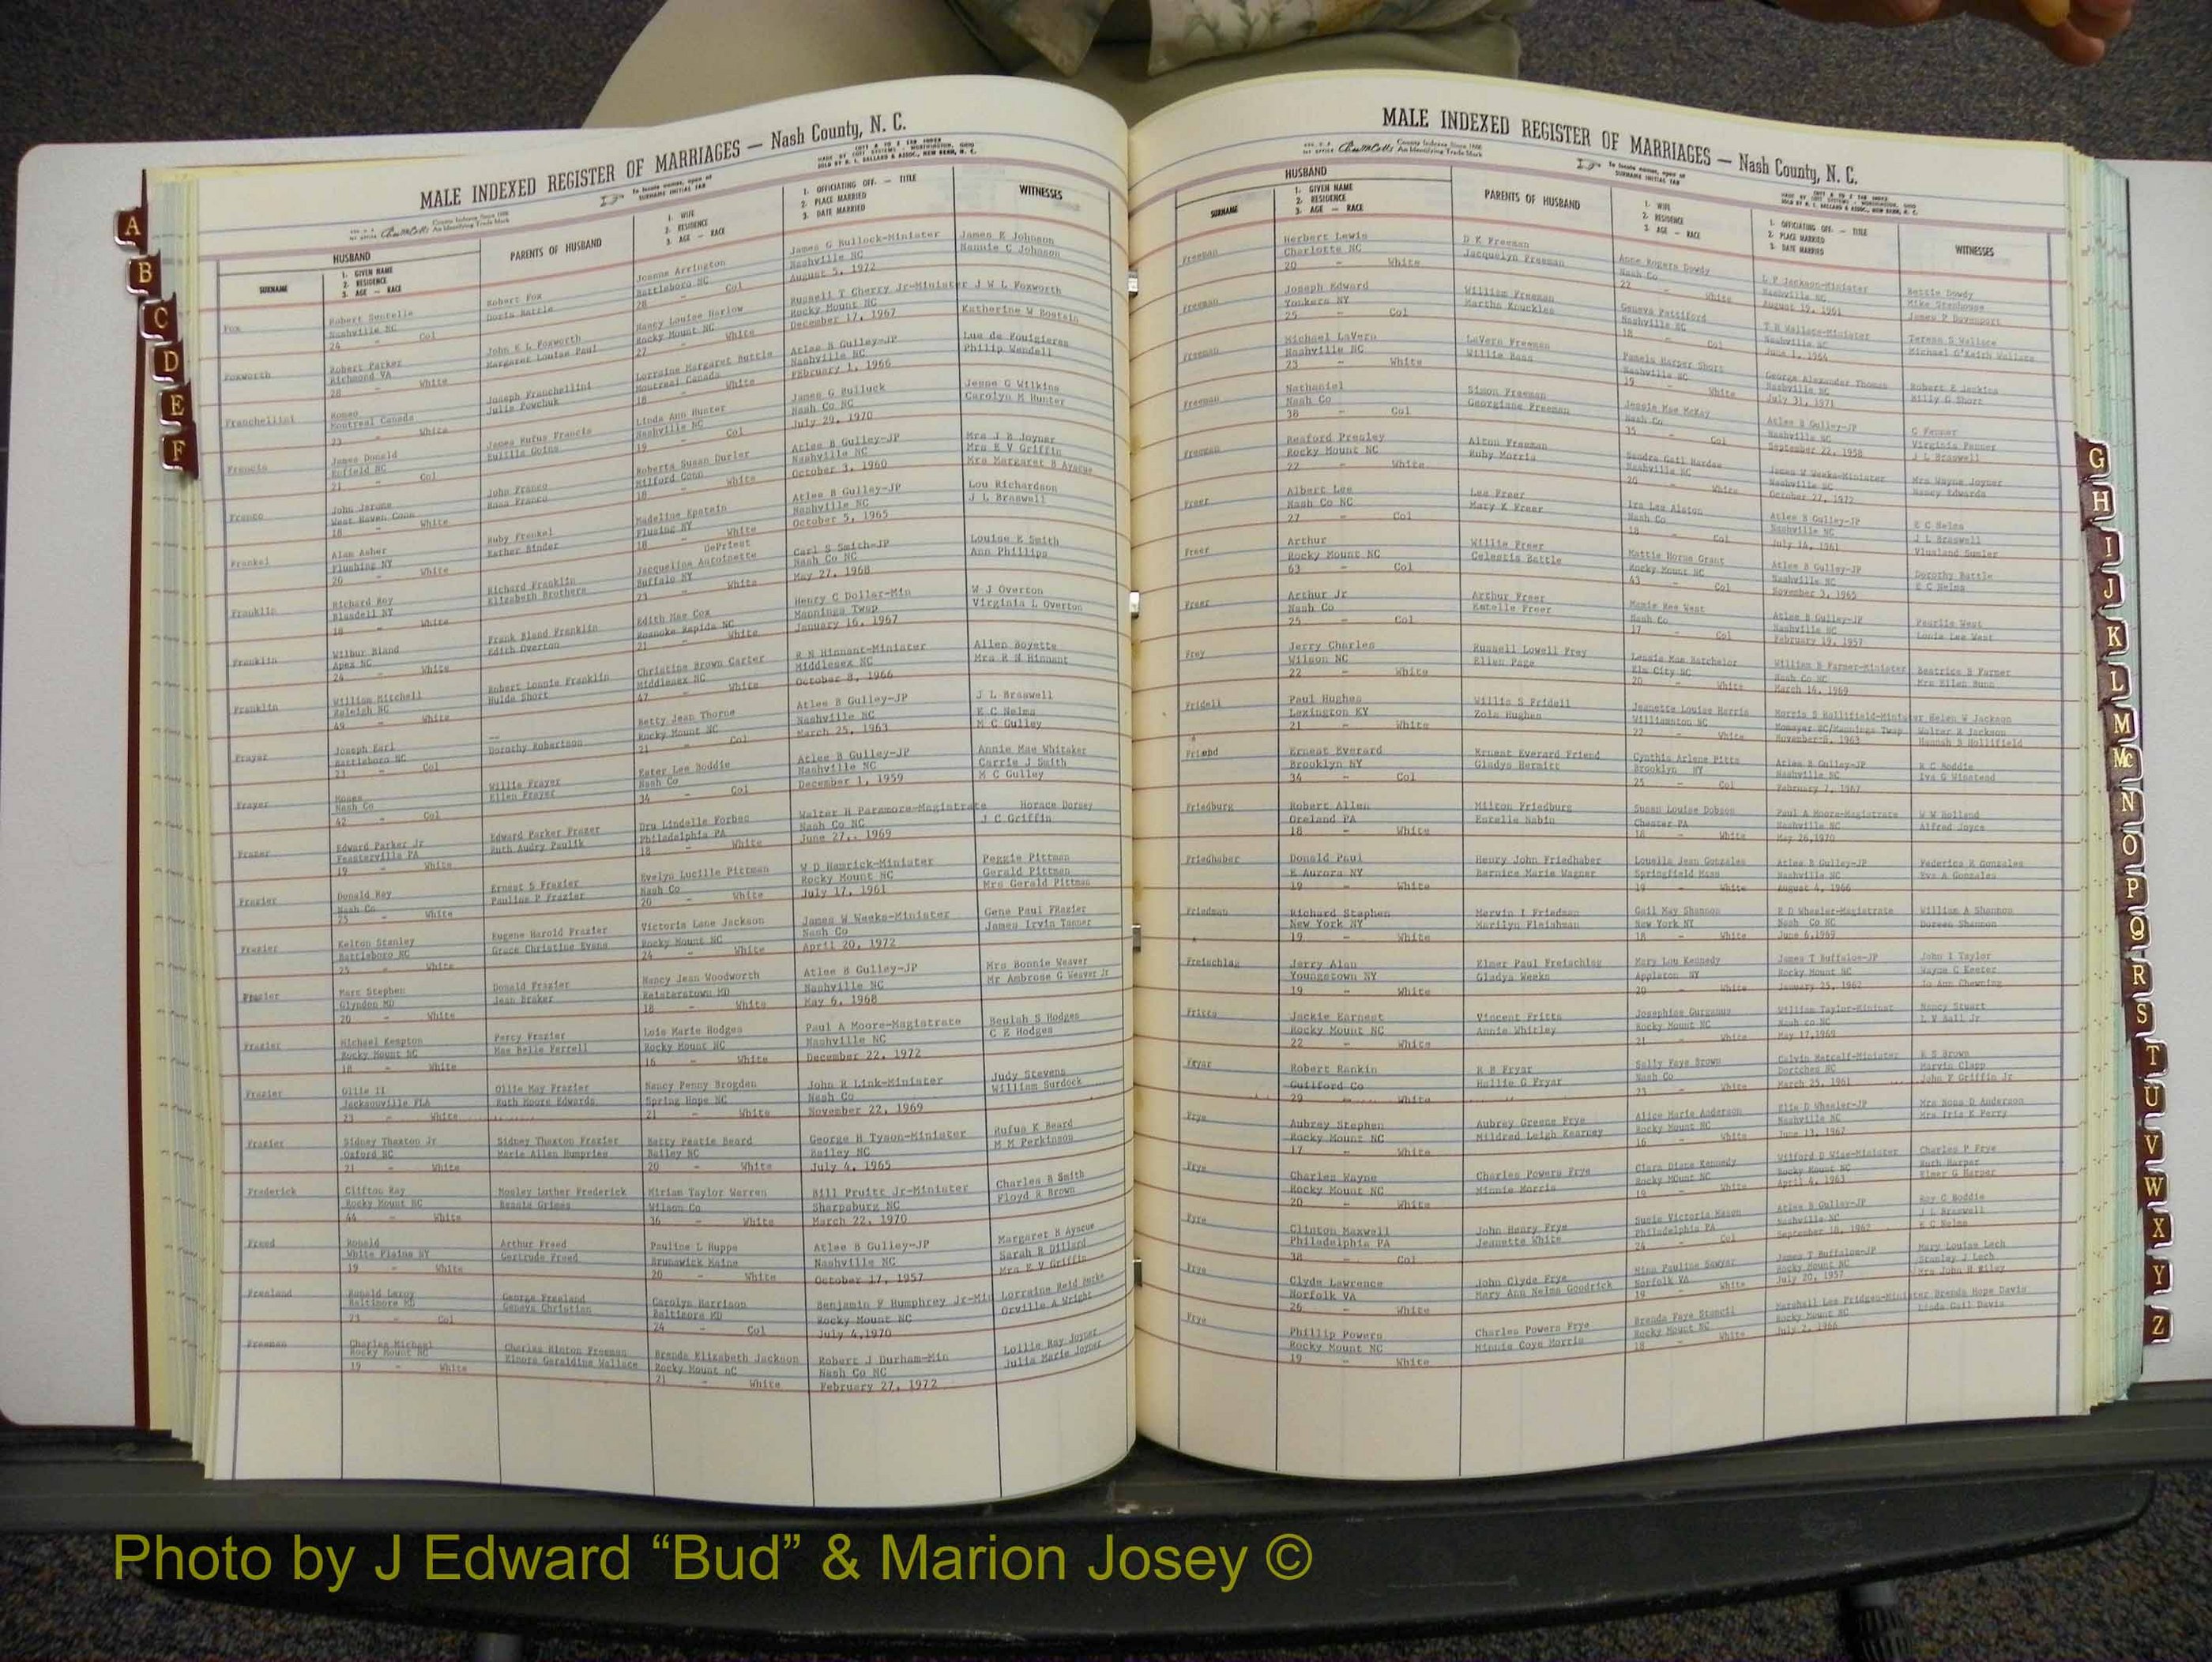 MALE INDEXED REGISTER OF MARRIAGES — Nash County, N. C.
HUSBAND
SURNAME
1. GIVEN NAME
2. RESIDENCE
3. AGE — RACE
PARENTS OF HUSBAND
1. WIFE
2. RESIDENCE
3. AGE — RACE
1. OFFICIATING OFF. — TITLE
2. PLACE MARRIED
3. DATE MARRIED
WITNESSES
Fox
Nashville NC
24 - Col
Robert Fox
Doris Battle
Joanne Arrington
Battleboro NC
28 - Col
James G Bullock-Minister
Nashville NC
August 5, 1972
James E Johnson
Nannie C Johnson
Foxworth
Robert Parker
Richmond VA
28 - White
John E L Foxworth
Margaret Louise Paul
Nancy Louise Harlow
Rocky Mount NC
27 - White
Russell T Cherry Jr-Minister
Rocky Mount NC
December 17, 1967
J W L Foxworth
Katherine W Bostain
Franchellini
Romeo
Montreal Canada
23 - White
Joseph Franchellini
Julie Powchuk
Lorraine Margaret Buttle
Montreal Canada
18 - White
Atlee B Gulley-JP
Nashville NC
February 1, 1966
Philip Wendell
Francis
James Donald
Enfield NC
21 - Col
James Rufus Francis
Eulilla Goins
Linda Ann Hunter
Nashville NC
19 - Col
James G Bulluck
Nash Co NC
July 29, 1970
Jesse G Wilkins
Carolyn M Hunter
Franco
John Jerome
West Haven Conn
18 - White
John Franco
Rose Franco
Roberta Susan Durler
Milford Conn
18 - White
Atlee B Gulley-JP
Nashville NC
October 3, 1960
Mrs J B Joyner
Mrs E V Griffin
Mrs Margaret B Ayscue
Frankel
Alan Asher
Flushing NY
20 - White
Ruby Frankel
Esther Binder
Madeline Epstein
Flusing NY
18 - White
Atlee B Gulley-JP
Nashville NC
October 5, 1965
Lou Richardson
J L Braswell
Franklin
Richard Roy
Blasdell NY
18 - White
Richard Franklin
Elizabeth Brothers
DePriest
Jacqueline Antoinette
Buffalo NY
23 - White
Carl S Smith-JP
Nash Co NC
May 27, 1968
Louise E Smith
Ann Phillips
Franklin
Wilbur Bland
Apex NC
24 - White
Frank Bland Franklin
Edith Overton
Edith Mae Cox
Roanoke Rapids NC
21 - White
Henry C Dollar-Min
Mannings Twsp
January 16, 1967
W J Overton
Virginia L Overton
Franklin
William Mitchell
Raleigh NC
49 - White
Robert Lonnie Franklin
Hulda Short
Christine Brown Carter
Middlesex NC
47 - White
R N Hinnant-Minister
Middlesex NC
October 8, 1966
Allen Boyette
Mrs R N Hinnant
Frayer
Joseph Earl
Battleboro NC
23 - Col
—
Dorothy Robertson
Betty Jean Thorne
Rocky Mount NC
21 - Col
Atlee B Gulley-JP
Nashville NC
March 25, 1963
J L Braswell
E C Nelms
M C Gulley
Frayer
Moses
Nash Co
42 - Col
Willis Frayer
Ellen Frayer
Ester Lee Boddie
Nash Co
34 - Col
Atlee B Gulley-JP
Nashville NC
December 1, 1959
Annie Mae Whitaker
Carrie J Smith
M C Gulley
Frazer
Edward Parker Jr
Feasterville PA
19 - White
Edward Parker Frazer
Ruth Audry Paulik
Dru Lindelle Forbes
Philadelphia PA
18 - White
Walter H Paramore-Magistrate
Nash Co NC
June 27, 1969
Horace Dorsey
J C Griffin
Frazier
Donald Ray
Nash Co
25 - White
Ernest S Frazier
Pauline P Frazier
Evelyn Lucille Pittman
Nash Co
20 - White
W D Hamrick-Minister
Rocky Mount NC
July 17, 1961
Peggie Pittman
Gerald Pittman
Mrs Gerald Pittman
Frazier
Kelton Stanley
Battleboro NC
25 - White
Eugene Harold Frazier
Grace Christine Evans
Victoria Lane Jackson
Rocky Mount NC
24 - White
James W Weeks-Minister
Nash Co
April 20, 1972
Gene Paul FRazier
James Irvin Tanner
Frazier
Marc Stephen
Glyndon MD
20 - White
Donald Frazier
Jean Braker
Nancy Jean Woodworth
Reisterstown MD
18 - White
Atlee B Gulley-JP
Nashville NC
May 6, 1968
Mrs Bonnie Weaver
Mr Ambrose G Weaver Jr
Frazier
Michael Kempton
Rocky Mount NC
18 - White
Percy Frazier
Mae Belle Ferrell
Lois Marie Hodges
Rocky Mount NC
16 - White
Paul A Moore-Magistrate
Nashville NC
December 22, 1972
Beulah S Hodges
C E Hodges
Frazier
Ollie II
Jacksonville FLA
23 - White
Ollie May Frazier
Ruth Moore Edwards
Nancy Penny Brogden
Spring Hope NC
21 - White
John R Link-Minister
Nash Co
November 22, 1969
Judy Stevens
William Surdock
Frazier
Sidney Thaxton Jr
Oxford NC
21 - White
Sidney Thaxton Frazier
Marie Allen Humpries
Betty Peatie Beard
Bailey NC
20 - White
George H Tyson-Minister
Bailey NC
July 4, 1965
Rufus K Beard
M M Perkinson
Frederick
Clifton Ray
Rocky Mount NC
44 - White
Mosley Luther Frederick
Bessie Grimes
Miriam Taylor Warren
Wilson Co
36 - White
Bill Pruitt Jr-Minister
Sharpsburg NC
March 22, 1970
Charles B Smith
Floyd R Brown
Freed
Ronald
White Plains NY
19 - White
Arthur Freed
Gertrude Freed
Pauline L Huppe
Brunswick Maine
20 - White
Atlee B Gulley-JP
Nashville NC
October 17, 1957
Margaret B Ayscue
Sarah R Dillard
Mrs E V Griffin
Freeland
Ronald Leroy
Baltimore MD
23 - Col
George Freeland
Geneva Christian
Carolyn Harrison
Baltimore MD
24 - Col
Benjamin F Humphrey Jr-Min
Rocky Mount NC
July 4,1970
Orville A Wright
Freeman
Charles Michael
Rocky Mount NC
19 - White
Charles Hinton Freeman
Elnora Geraldine Wallace
Brenda Elizabeth Jackson
Rocky Mount nC
21 - White
Robert J Durham-Min
Nash Co NC
February 27, 1972
Lollie Ray Joyner
Julia Marie Joyner
MALE INDEXED REGISTER OF MARRIAGES — Nash County, N. C.
HUSBAND
SURNAME
1. GIVEN NAME
2. RESIDENCE
3. AGE — RACE
PARENTS OF HUSBAND
1. WIFE
2. RESIDENCE
3. AGE — RACE
1. OFFICIATING OFF. — TITLE
2. PLACE MARRIED
3. DATE MARRIED
WITNESSES
Freeman
Herbert Lewis
Charlotte NC
20 - White
D K Freeman
Jacquelyn Freeman
Anne Rogers Dowdy
Nash Co
22 - White
L P Jackson-Minister
Nashville NC
August 19, 1961
Bettie Dowdy
Mike Stenhouse
James P Davenport
Freeman
Joseph Edward
Yonkers NY
25 - Col
William Freeman
Martha Knuckles
Geneva Pettiford
Nashville NC
18 - Col
T R Wallace-Minister
Nashville NC
June 1, 1964
Teresa S Wallace
Michael O'Keith Wallace
Freeman
Michael LaVern
Nashville NC
23 - White
LaVern Freeman
Willie Bass
Pamela Harper Short
Nashville NC
19 - White
George Alexander Thomas
Nashville NC
July 31, 1971
Robert E Jenkins
Billy G Short
Freeman
Nathaniel
Nash Co
38 - Col
Simon Freeman
Georgiane Freeman
Jessie Mae McKay
Nash Co
35 - Col
Atlee B Gulley-JP
Nashville NC
September 22, 1958
Virginia Fenner
J L Braswell
Freeman
Reaford Presley
Rocky Mount NC
22 - White
Alton Freeman
Ruby Morris
Sandra Gail Hardee
Nashville NC
20 - White
James W Weeks-Minister
Nashville NC
October 27, 1972
Mrs Wayne Joyner
Nancy Edwards
Freer
Albert Lee
Nash Co NC
27 - Col
Lee Freer
Mary K Freer
Ira Lee Alston
Nash Co
18 - Col
Atlee B Gulley-JP
Nashville NC
July 16, 1961
E C Nelms
J L Braswell
Freer
Arthur
Rocky Mount NC
63 - Col
Willie Freer
Celestia Battle
Mattie Horne Grant
Rocky Mount NC
43 - Col
Atlee B Gulley-JP
Nashville NC
November 3, 1965
Dorothy Battle
E C Nelms
Freer
Arthur Jr
Nash Co
25 - Col
Arthur Freer
Estelle Freer
Mamie Ree West
Nash Co
17 - Col
Atlee B Gulley-JP
Nashville NC
February 19, 1957
Pearlie West
Louis Lee West
Frey
Jerry Charles
Wilson NC
22 - White
Russell Lowell Frey
Ellen Page
Lessie Mae Batchelor
Elm City NC
20 - White
William B Farmer-Minister
Nash Co NC
March 16, 1969
Beatrice B Farmer
Mrs Ellen Bunn
Fridell
Paul Hughes
Lexington KY
21 - White
Willis S Fridell
Zola Hughes
Jeanette Louise Harris
Williamston NC
22 - White
Morris S Hollifield-Minister
Momeyer NC/Mannings Twsp
November 8, 1963
Helen W Jackson
Walter R Jackson
Hannah S Hollifield
Friend
Ernest Everard
Brooklyn NY
34 - Col
Ernest Everard Friend
Gladys Hermitt
Cynthia Arlene Pitts
Brooklyn NY
25 - Col
Atlee B Gulley-JP
Nashville NC
February 7, 1967
R C Boddie
Iva G Winstead
Friedburg
Robert Allen
Oreland PA
18 - White
Milton Friedburg
Estelle Nabin
Susan Louise Dobson
Chester PA
18 - White
Paul A Moore-Magistrate
Nashville NC
May 26,1970
W W Holland
Alfred Joyce
Friedhaber
Donald Paul
E Aurora NY
19 - White
Henry John Friedhaber
Bernice Marie Wagner
Louella Jean Gonzales
Springfield Mass
19 - White
Atlee B Gulley-JP
Nashville NC
August 4, 1966
Federico R Gonzales
Eva A Gonzales
Friedman
Richard Stephen
New York NY
19 - White
Mervin I Friedman
Marilyn Fleishman
Gail May Shannon
New York NY
18 - White
E D Wheeler-Magistrate
Nash Co NC
June 6,1969
William A Shannon
Doreen Shannon
Freischlag
Jerry Alan
Youngstown NY
19 - White
Elmer Paul Freischlag
Gladys Weeks
Mary Lou Kennedy
Appleton NY
20 - White
James T Buffaloe-JP
Rocky Mount NC
January 25, 1962
John I Taylor
Wayne C Keeter
Jo Ann Chewning
Fritts
Jackie Earnest
Rocky Mount NC
22 - White
Vincent Fritts
Annie Whitley
Josephine Gurganus
Rocky Mount NC
21 - White
William Taylor-Mininst
Nash co NC
May 17,1969
Nancy Stuart
L V Ball Jr
Fryar
Robert Rankin
Guilford Co
29 - White
R B Fryar
Hallie G Fryar
Sally Faye Brown
Nash Co
23 - White
Calvin Metcalf-Minister
Dortches NC
March 25, 1961
R S Brown
Marvin Clapp
John F Griffin Jr
Frye
Aubrey Stephen
Rocky Mount NC
17 - White
Aubrey Greene Frye
Mildred Leigh Kearney
Alice Marie Anderson
Rocky Mount NC
16 - White
Elis D Wheeler-JP
Nashville NC
June 13, 1967
Mrs Rosa D Anderson
Mrs Iris K Perry
Frye
Charles Wayne
Rocky Mount NC
20 - White
Charles Powers Frye
Minnie Morris
Clara Diane Kennedy
Rocky MOunt NC
19 - White
Wilford D Wise-Minister
Rocky Mount NC
April 4, 1963
Charles P Frye
Ruth Harper
Elmer G Harper
Fyre
Clinton Maxwell
Philadelphia PA
38 - Col
John Henry Frye
Jeanette White
Susie Victoria Mason
Philadelphia PA
24 - Col
Atlee B Gulley-JP
Nashville NC
September 18, 1962
Roy C Boddie
J L Braswell
E C Nelms
Frye
Clyde Lawrence
Norfolk VA
26 - White
John Clyde Frye
Mary Ann Nelms Goodrick
Nina Pauline Sawyer
Norfolk VA
19 - White
James T Buffaloe-JP
Rocky Mount NC
July 20, 1957
Mary Louise Lech
Stanley J Lech
Mrs John H Riley
Frye
Phillip Powers
Rocky Mount NC
19 - White
Charles Powers Frye
Minnie Coye Morris
Brenda Faye Stancil
Rocky Mount NC
18 - White
Marshall Lee Pridgen-Minister
Rocky Mount NC
July 2, 1966
Brenda Hope Davis
Linda Gail Davis
A
B
C
D
E
F
G
H
I
J
K
L
M
Mc
N
O
P
Q
R
S
T
U
V
W
X
Y
Z
Photo by J Edward “Bud” & Marion Josey ©